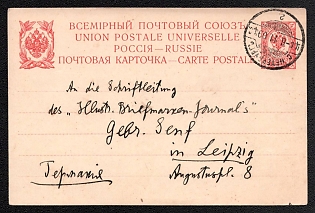 ВСЕМІРНЫЙ ПОЧТОВЫЙ СОЮЗЪ
UNION POSTALE UNIVERSELLE
РОССІЯ—RUSSIE
ПОЧТОВАЯ КАРТОЧКА—CARTE POSTALE
An die Schriftleitung
des „Illustr. Briefmarken-Journals"
Gebr. Senf
in Leipzig
Германія
Augustuspl. 8